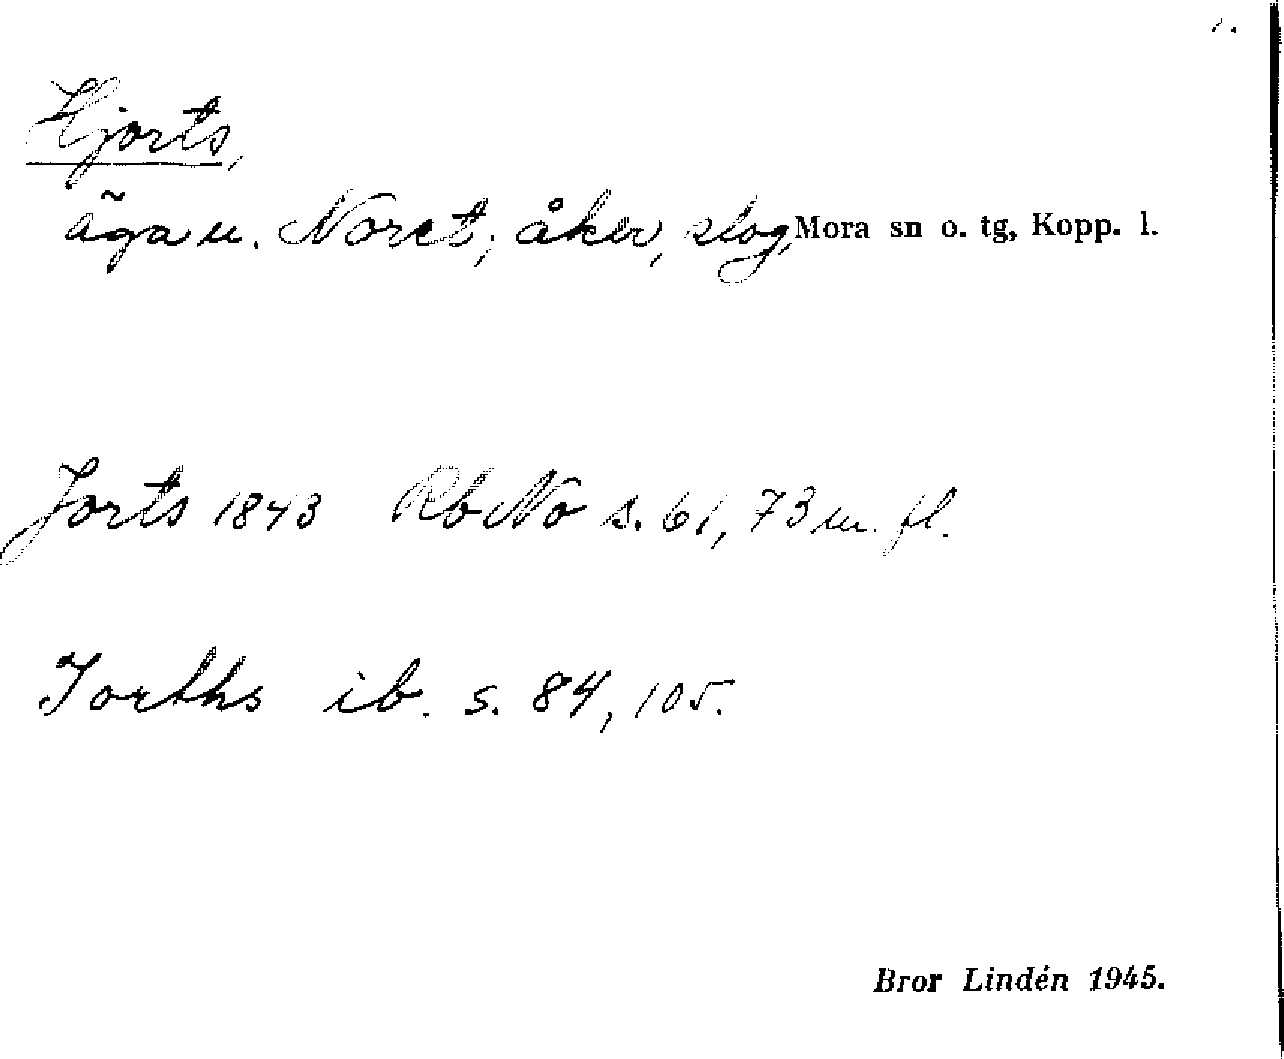 Hjorts,
äga u. Noret; åker, slog, Mora sn o. tg, Kopp. l.
Jorts 1843 RbNo s. 61, 73 m. fl.
Jorths ib. s. 84, 105.
Bror Lindén 1945.